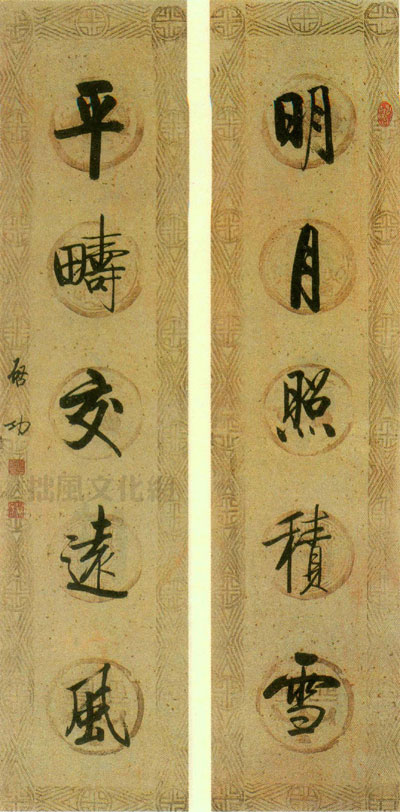 明月照積雪
平疇交遠風
啓功
拙風文化網